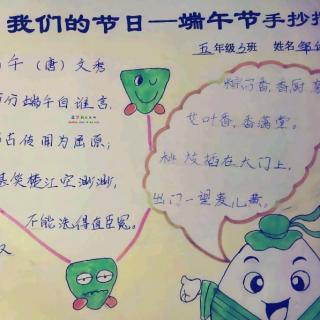 我们的节日—端午节手抄报
五年级3班 姓名
午 (唐) 文秀
分端午自谁言,
古传闻为屈原;
笑楚江空渺渺,
不能洗得直臣冤。
粽子香,香厨
艾叶香,香满堂。
桃枝插在大门上,
出门一望麦儿黄。